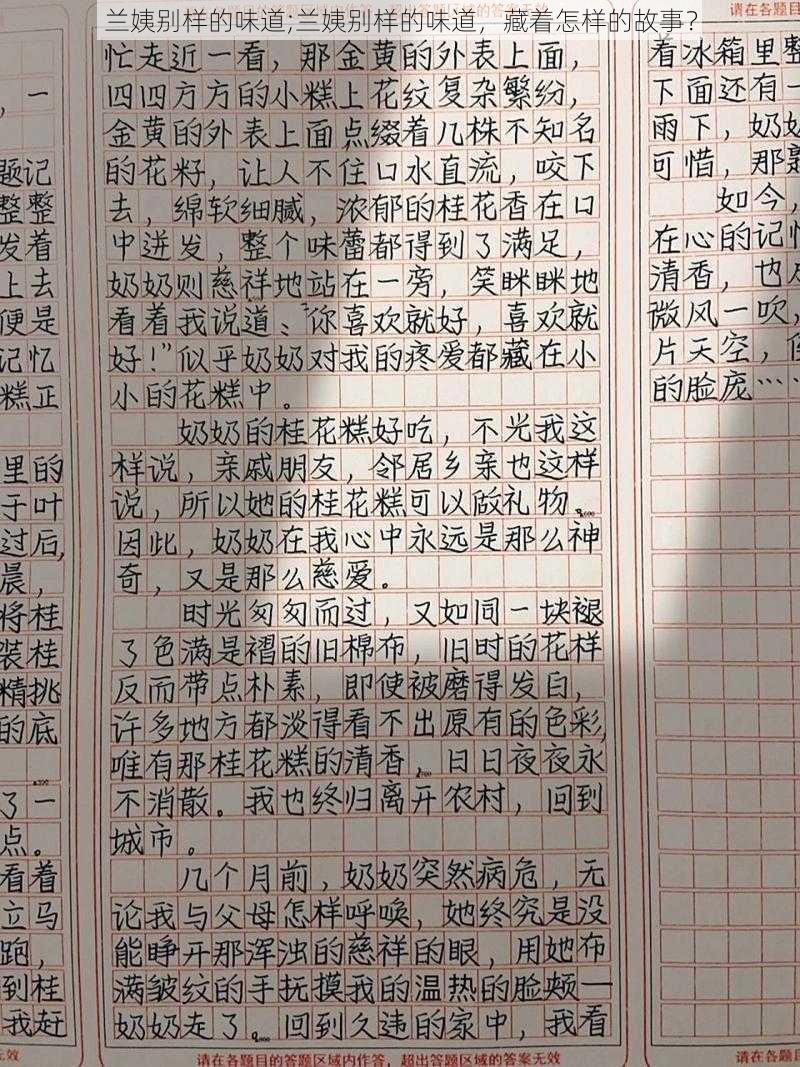 兰姨别样的味道;兰姨别样的味道，藏着怎样的故事？
，一
题记
整整
发着
上去
便是
记忆
糕正
里的
于叶
过后，
晨，
将桂
装桂
精挑
的底
了一
点。
看着
立马
跑，
到桂
我赶
忙走近一看，那金黄的外表上面，
四四方方的小糕上花纹复杂繁纷，
金黄的外表上面点缀着几株不知名
的花籽，让人不住口水直流，咬下
去，绵软细腻，浓郁的桂花香在口
中迸发，整个味蕾都得到了满足，
奶奶则慈祥地站在一旁，笑眯眯地
看着我说道："你喜欢就好，喜欢就
好！"似乎奶奶对我的疼爱都藏在小
小的花糕中。
奶奶的桂花糕好吃，不光我这
样说，亲戚朋友，邻居乡亲也这样
说，所以她的桂花糕可以做礼物。
因此，奶奶在我心中永远是那么神
奇，又是那么慈爱。
时光匆匆而过，又如同一块褪
了色满是褶的旧棉布，旧时的花样
反而带点朴素，即使被磨得发白，
许多地方都淡得看不出原有的色彩，
唯有那桂花糕的清香，日日夜夜永
不消散。我也终归离开农村，回到
城市。
几个月前，奶奶突然病危，无
论我与父母怎样呼唤，她终究是没
能睁开那浑浊的慈祥的眼，用她布
满皱纹的手抚摸我的温热的脸颊一
奶奶走了。回到久违的家中，我看
请在各题目的答题区域内作答，超出答题区域的答案无效
请在各题目
着冰箱里整
下面还有一
雨下，奶奶
可惜，那
如今，
在心的记忆
清香，也
微风一吹，
片天空，
的脸庞……
请在各题目